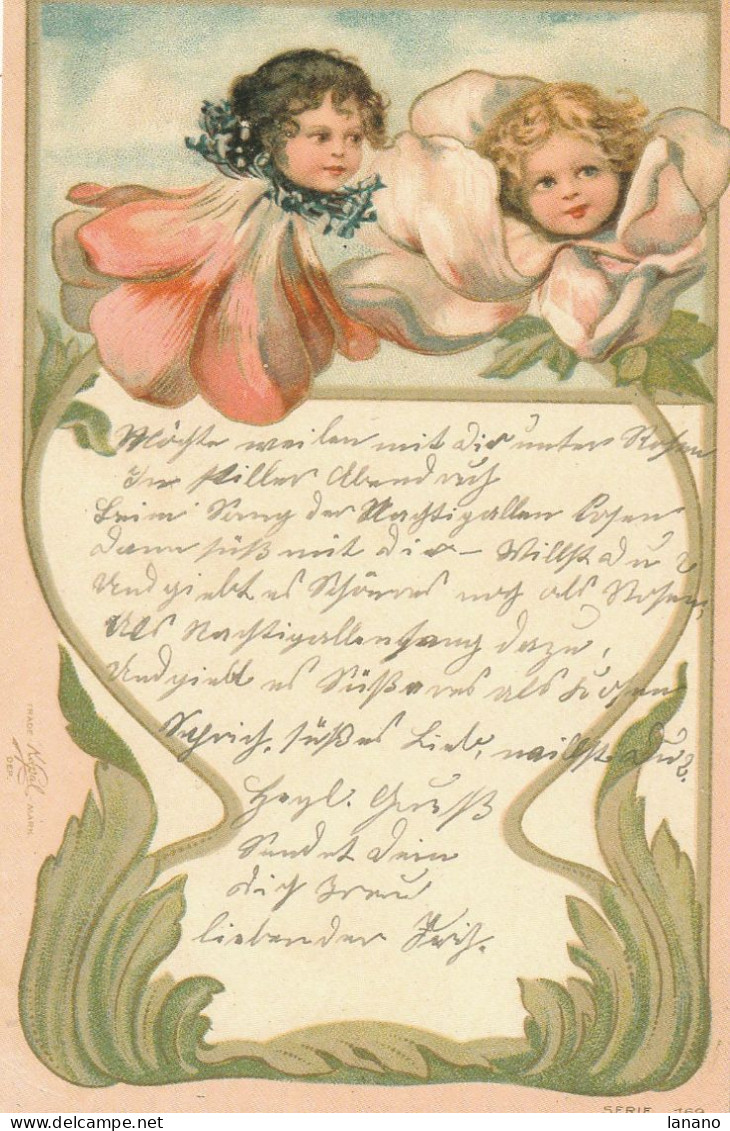 Möchte weilen mit dir unter Rosen
In stiller Abendruh
Beim Sang der Nachtigallen kosen
Dann süß mit dir – Willst du?
Und giebt es Schönres noch als Rosen,
Als Nachtigallensang dazu,
Und giebt es Süßeres als Kosen
Sprich, süßes Lieb, willst du?
Herzl. Gruß
Sendet Dein
dich treu
liebender Fritz.
TRADE MARK
DEP.
SERIE 169
lanano